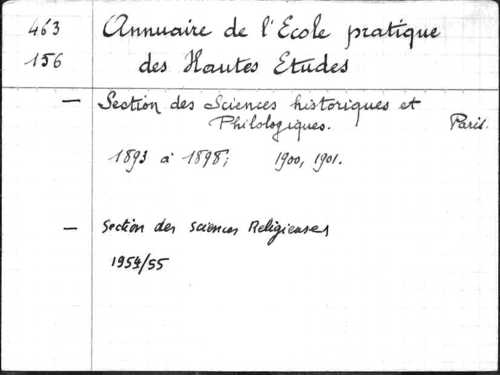 463 Annuaire de l'Ecole pratique
156 des Hautes Etudes
— Section des Sciences historiques et
Philologiques. Paris.
1893 à 1898; 1900, 1901.
— Section des Sciences Religieuses
1954/55